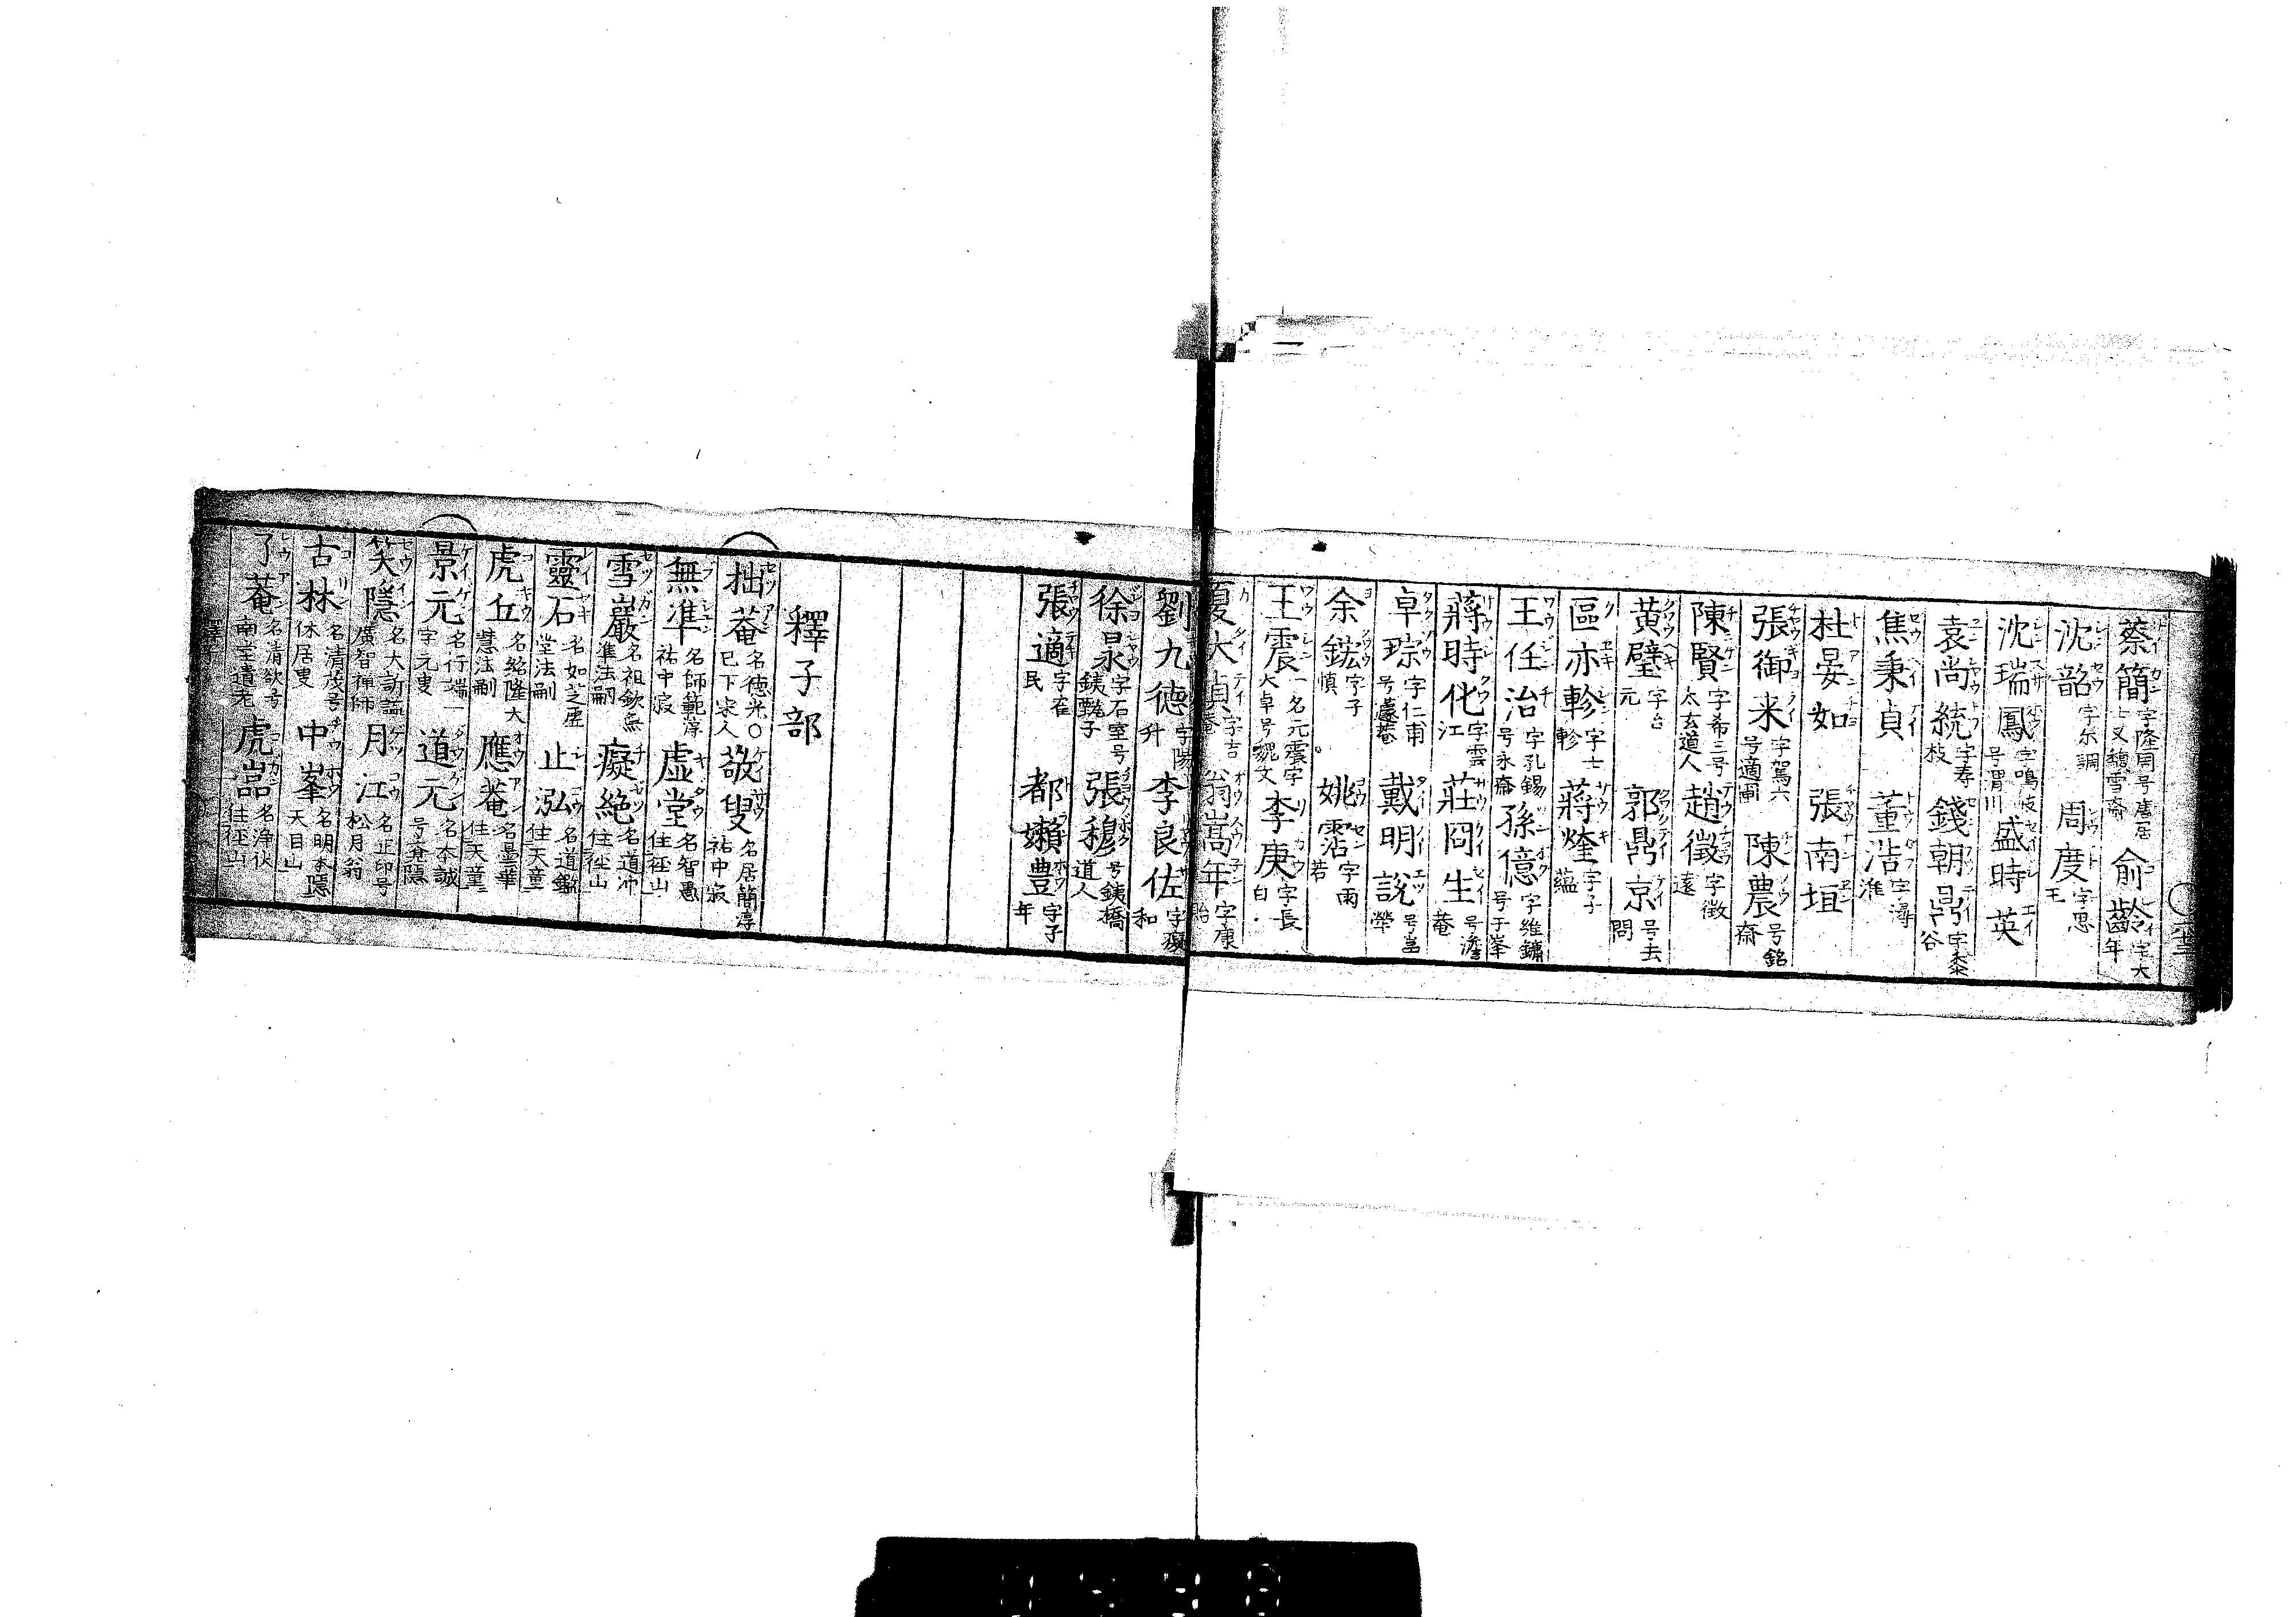 蔡簡 字隆用号唐居士又穂雪斎 俞齡 字大年
沈韶 字尔調 周度 字思王
沈瑞鳳 字鳴岐号渭川 盛時英
袁尚統 字寿枝 錢朝鼎 字黍谷
焦秉貞 董浩 字濤淮
杜晏如 張南垣
張御来 字駕六号適園 陳農 号銘斎
陳賢 字希三号太玄道人 趙徵 字徴遠
黄璧 字台元 郭鼎京 号去問
區亦軫 字士軫 蔣㷡 字子蘊
王任治 字孔錫号永斎 孫億 字維鏞号于峯
蔣時化 字雲江 莊冏生 号澹菴
卓琮 字仁甫号蘧菴 戴明說 号嵓犖
余鋐 字子慎 姚霑 字雨若
王震 一名元震字大卓号魏文 李庚 字長白
夏大貞 字吉菴 翁嵩年 字康飴
劉九德 字陽升 李良佐 字癡和
徐㫤 字石室号銕豒子 張穆 号銕橋道人
張適 字在民 都嬾豊 字子年
釋子部
拙菴 名德光〇已下宋人 敬叟 名居簡淳祐中寂
無準 名師範淳祐中寂 虚堂 名智愚住徑山
雪巖 名祖欽無準法嗣 癡絶 名道冲住徑山
靈石 名如芝虚堂法嗣 止泓 名道鑑住天童
虎丘 名紹隆大慧法嗣 應菴 名曇華住天童
景元 名行端一字元叟 道元 名本誠号覺隱
笑隱 名大訢諡廣智禅師 月江 名正印号松月翁
古林 名清茂号休居叟 中峯 名明本隱天目山
了菴 名清欲号南堂遺老 虎嵓 名淨伏住徑山
釋子